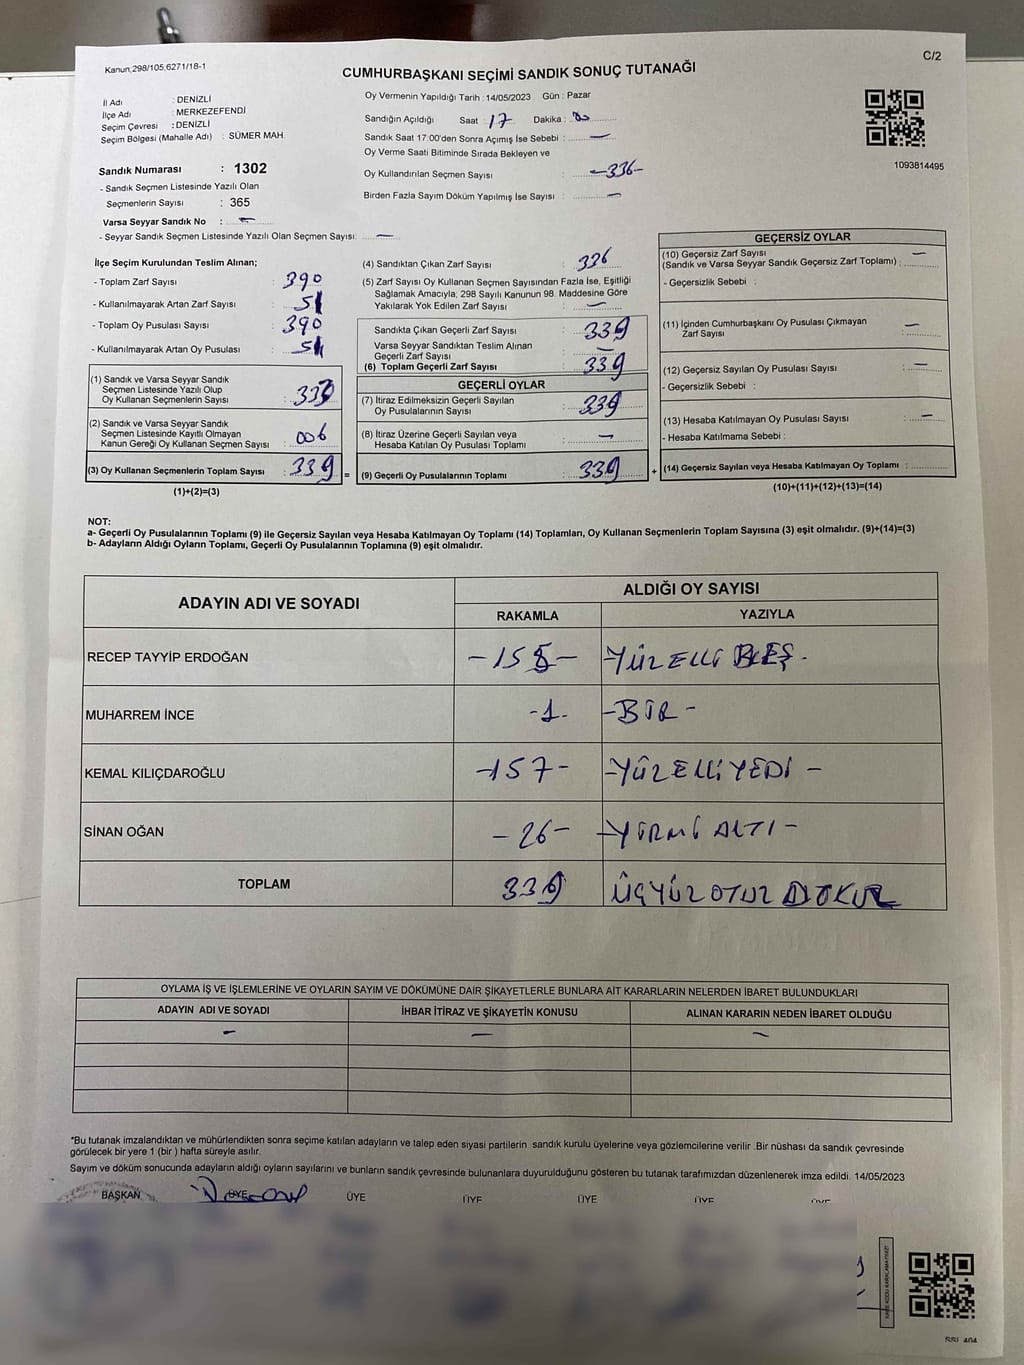 Kanun;298/105,6271/18-1
C/2
CUMHURBAŞKANI SEÇİMİ SANDIK SONUÇ TUTANAĞI
İl Adı : DENİZLİ
İlçe Adı : MERKEZEFENDİ
Seçim Çevresi : DENİZLİ
Seçim Bölgesi (Mahalle Adı) : SÜMER MAH.
Sandık Numarası : 1302
- Sandık Seçmen Listesinde Yazılı Olan
Seçmenlerin Sayısı : 365
Varsa Seyyar Sandık No : -
- Seyyar Sandık Seçmen Listesinde Yazılı Olan Seçmen Sayısı: -
Oy Vermenin Yapıldığı Tarih : 14/05/2023 Gün : Pazar
Sandığın Açıldığı Saat 17 Dakika :
Sandık Saat 17:00'den Sonra Açımış İse Sebebi : -
Oy Verme Saati Bitiminde Sırada Bekleyen ve
Oy Kullandırılan Seçmen Sayısı : -336-
Birden Fazla Sayım Döküm Yapılmış İse Sayısı : -
1093814495
İlçe Seçim Kurulundan Teslim Alınan;
- Toplam Zarf Sayısı : 390
- Kullanılmayarak Artan Zarf Sayısı :
- Toplam Oy Pusulası Sayısı : 390
- Kullanılmayarak Artan Oy Pusulası :
(1) Sandık ve Varsa Seyyar Sandık
Seçmen Listesinde Yazılı Olup
Oy Kullanan Seçmenlerin Sayısı :
(2) Sandık ve Varsa Seyyar Sandık
Seçmen Listesinde Kayıtlı Olmayan
Kanun Gereği Oy Kullanan Seçmen Sayısı : 006
(3) Oy Kullanan Seçmenlerin Toplam Sayısı : 339 =
(1)+(2)=(3)
(4) Sandıktan Çıkan Zarf Sayısı : 336
(5) Zarf Sayısı Oy Kullanan Seçmen Sayısından Fazla İse, Eşitliği
Sağlamak Amacıyla; 298 Sayılı Kanunun 98. Maddesine Göre
Yakılarak Yok Edilen Zarf Sayısı : -
Sandıkta Çıkan Geçerli Zarf Sayısı : 339
Varsa Seyyar Sandıktan Teslim Alınan
Geçerli Zarf Sayısı : -
(6) Toplam Geçerli Zarf Sayısı : 339
GEÇERLİ OYLAR
(7) İtiraz Edilmeksizin Geçerli Sayılan
Oy Pusulalarının Sayısı : 339
(8) İtiraz Üzerine Geçerli Sayılan veya
Hesaba Katılan Oy Pusulası Toplamı : -
(9) Geçerli Oy Pusulalarının Toplamı : 339 +
GEÇERSİZ OYLAR
(10) Geçersiz Zarf Sayısı -
(Sandık ve Varsa Seyyar Sandık Geçersiz Zarf Toplamı) :
- Geçersizlik Sebebi :
(11) İçinden Cumhurbaşkanı Oy Pusulası Çıkmayan
Zarf Sayısı : -
(12) Geçersiz Sayılan Oy Pusulası Sayısı : -
- Geçersizlik Sebebi :
(13) Hesaba Katılmayan Oy Pusulası Sayısı : -
- Hesaba Katılmama Sebebi :
(14) Geçersiz Sayılan veya Hesaba Katılmayan Oy Toplamı :
(10)+(11)+(12)+(13)=(14)
NOT:
a- Geçerli Oy Pusulalarının Toplamı (9) ile Geçersiz Sayılan veya Hesaba Katılmayan Oy Toplamı (14) Toplamları, Oy Kullanan Seçmenlerin Toplam Sayısına (3) eşit olmalıdır. (9)+(14)=(3)
b- Adayların Aldığı Oyların Toplamı, Geçerli Oy Pusulalarının Toplamına (9) eşit olmalıdır.
ADAYIN ADI VE SOYADI ALDIĞI OY SAYISI
RAKAMLA YAZIYLA
RECEP TAYYİP ERDOĞAN -155- -YÜZ ELLİ BEŞ-
MUHARREM İNCE -1- -BİR-
KEMAL KILIÇDAROĞLU -157- -YÜZ ELLİ YEDİ-
SİNAN OĞAN -26- -YİRMİ ALTI-
TOPLAM 339 ÜÇYÜZ OTUZ DOKUZ
OYLAMA İŞ VE İŞLEMLERİNE VE OYLARIN SAYIM VE DÖKÜMÜNE DAİR ŞİKAYETLERLE BUNLARA AİT KARARLARIN NELERDEN İBARET BULUNDUKLARI
ADAYIN ADI VE SOYADI İHBAR İTİRAZ VE ŞİKAYETİN KONUSU ALINAN KARARIN NEDEN İBARET OLDUĞU
- - -
*Bu tutanak imzalandıktan ve mühürlendikten sonra seçime katılan adayların ve talep eden siyasi partilerin sandık kurulu üyelerine veya gözlemcilerine verilir .Bir nüshası da sandık çevresinde
görülecek bir yere 1 (bir ) hafta süreyle asılır.
Sayım ve döküm sonucunda adayların aldığı oyların sayılarını ve bunların sandık çevresinde bulunanlara duyurulduğunu gösteren bu tutanak tarafımızdan düzenlenerek imza edildi. 14/05/2023
BAŞKAN ÜYE ÜYE ÜYE ÜYE ÜYE ÜYE